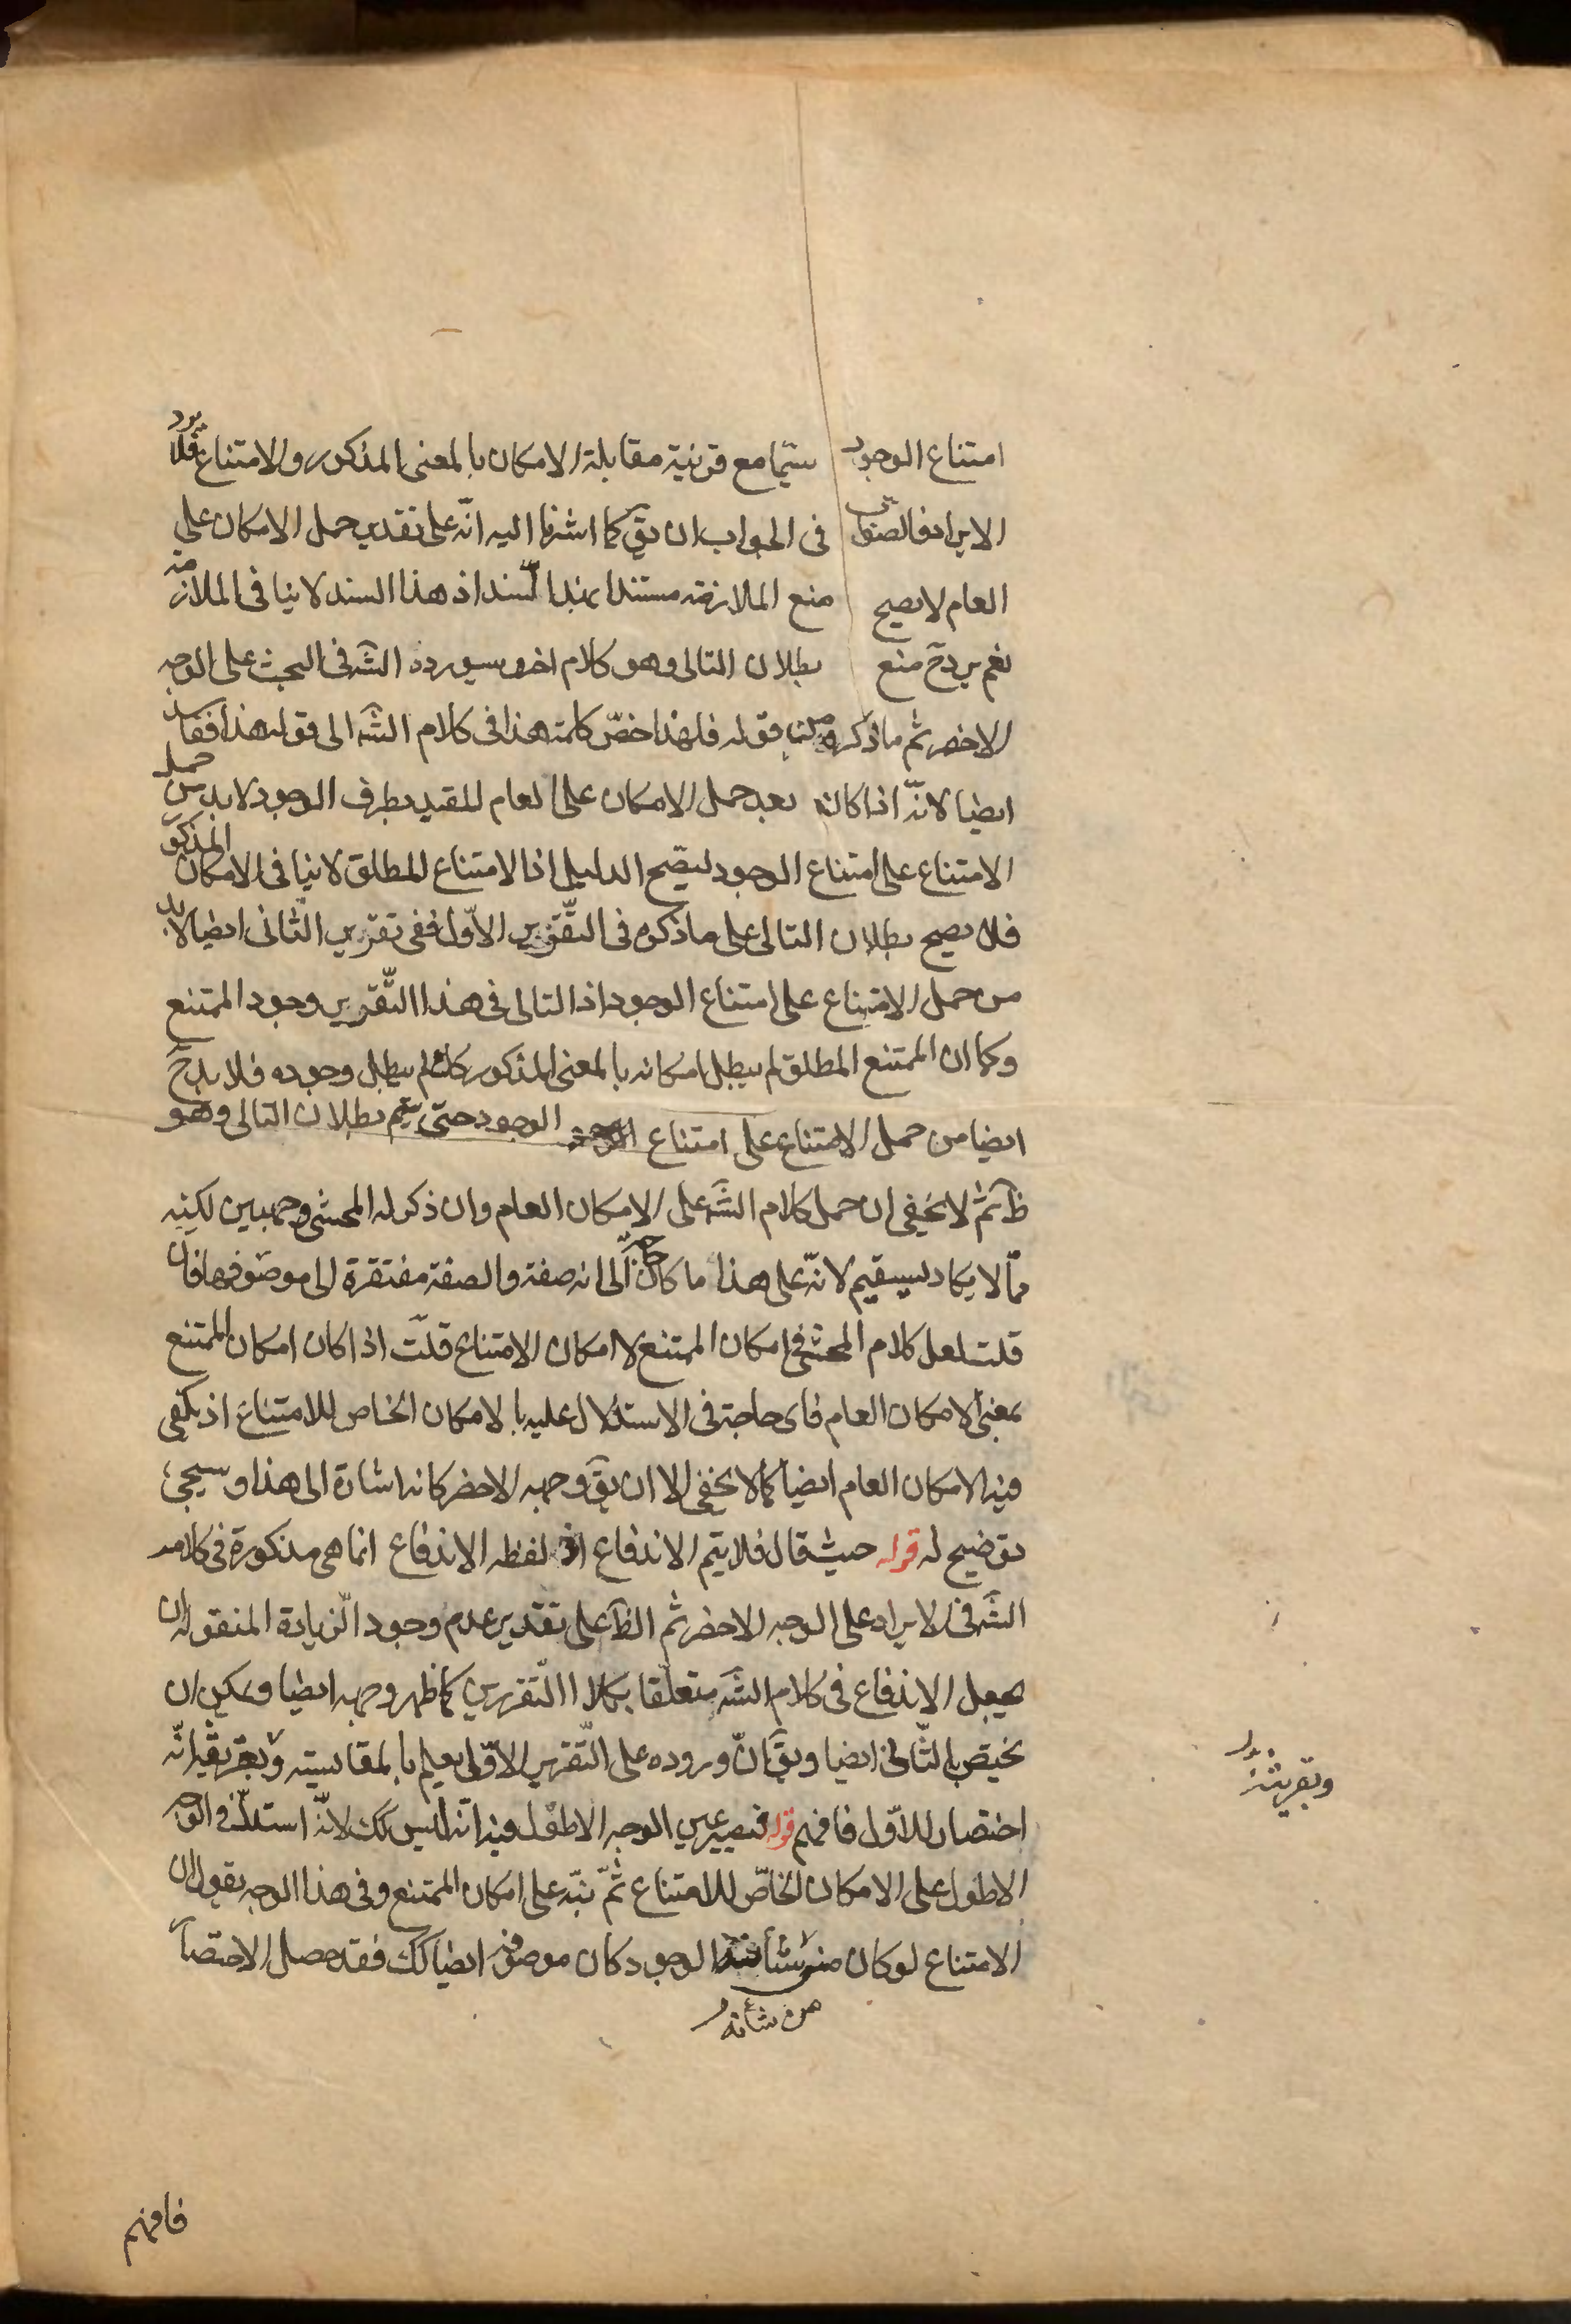 امتناع الوجود سيّما مع قرينة مقابلة الامكان بالمعنى المذكور والامتناع فلا يرد
الايراد فالصواب فى الجواب ان يقٓ كما اشرنا اليه انّه على تقدير حمل الامكان على
العام لا يصح منع الملازمة مستندا بهذا السند اذ هذا السند لا ينافى الملازمة
نعم يرد حٓ منع بطلان التالى وهو كلام اخر وسيورده الشٓه فى البحث على الوجه
الاخصر ثم ما ذكره من قوله فلهذا خصّ كلمة هذا فى كلام الشٓه الى قوله هذا فقاسد
ايضا لانّه اذا كان بعد حمل الامكان على العام المقيد بطرف الوجود لا بد من حمل
الامتناع على امتناع الوجود ليصّح الدليل اذ الامتناع المطلق لا ينافى الامكان المذكور
فلا يصح بطلان التالى على ما ذكره فى التّقرير الاوّل ففى تقرير الثّانى ايضا لا بد
من حمل الامتناع على امتناع الوجود اذ التالى فى هذا التّقرير وجود الممتنع
وكما ان الممتنع المطلق لم يبطل امكانه بالمعنى المذكور كذلك لم يبطل وجوده فلا بد حٓ
ايضا من حمل الامتناع على امتناع الوجود حتى يتم بطلان التالى وهو
ظٓ ثم لا يخفى ان حمل كلام الشٓه على الامكان العام وان ذكر له المحشى وجهين لكنه
ممّا لا يكاد يستقيم لانّه على هذا ما كان حاجة الى انه صفة والصفة مفتقرة الى موصوفها فان
قلت لعل كلام المحشى فى امكان الممتنع لا امكان الامتناع قلت اذا كان امكان الممتنع
بمعنى الامكان العام فاى حاجة فى الاستدلال عليه بالامكان الخاص للامتناع اذ يكفى
فيه الامكان العام ايضا كما لا يخفى الا ان يقٓ وجهه الاخصر كانه اشارة الى هذا وسيجئ
توضيح له قوله حيث قال فلا يتم الاندفاع اذ لفظه الاندفاع انما هى مذكورة فى كلامه
الشٓه فى الايراد على الوجه الاخصر ثم الظٓ على تقدير عدم وجود الزيادة المنقولة ان
يجعل الاندفاع فى كلام الشٓه متعلّقا بكلا التّقريرين كما ظهر وجهه ايضا ويمكن ان
يختصّ بالثّانى ايضا ويقٓ انّ وروده على التّقرير الاوّل يعلم بالمقايسة وبقرينة انّه
اختصار للاوّل فافهم قوله فيصير عين الوجه الاطول فيه انّه ليس كك لانّه استدلّ فى الوجه
الاطول على الامكان الخاصّ للامتناع ثمّ نبّه على امكان الممتنع وفى هذا الوجه يقول ان
الامتناع لو كان من شأنه الوجود كان موصوفه ايضا كك فقد حصل الاختصار
من شأنه
فافهم